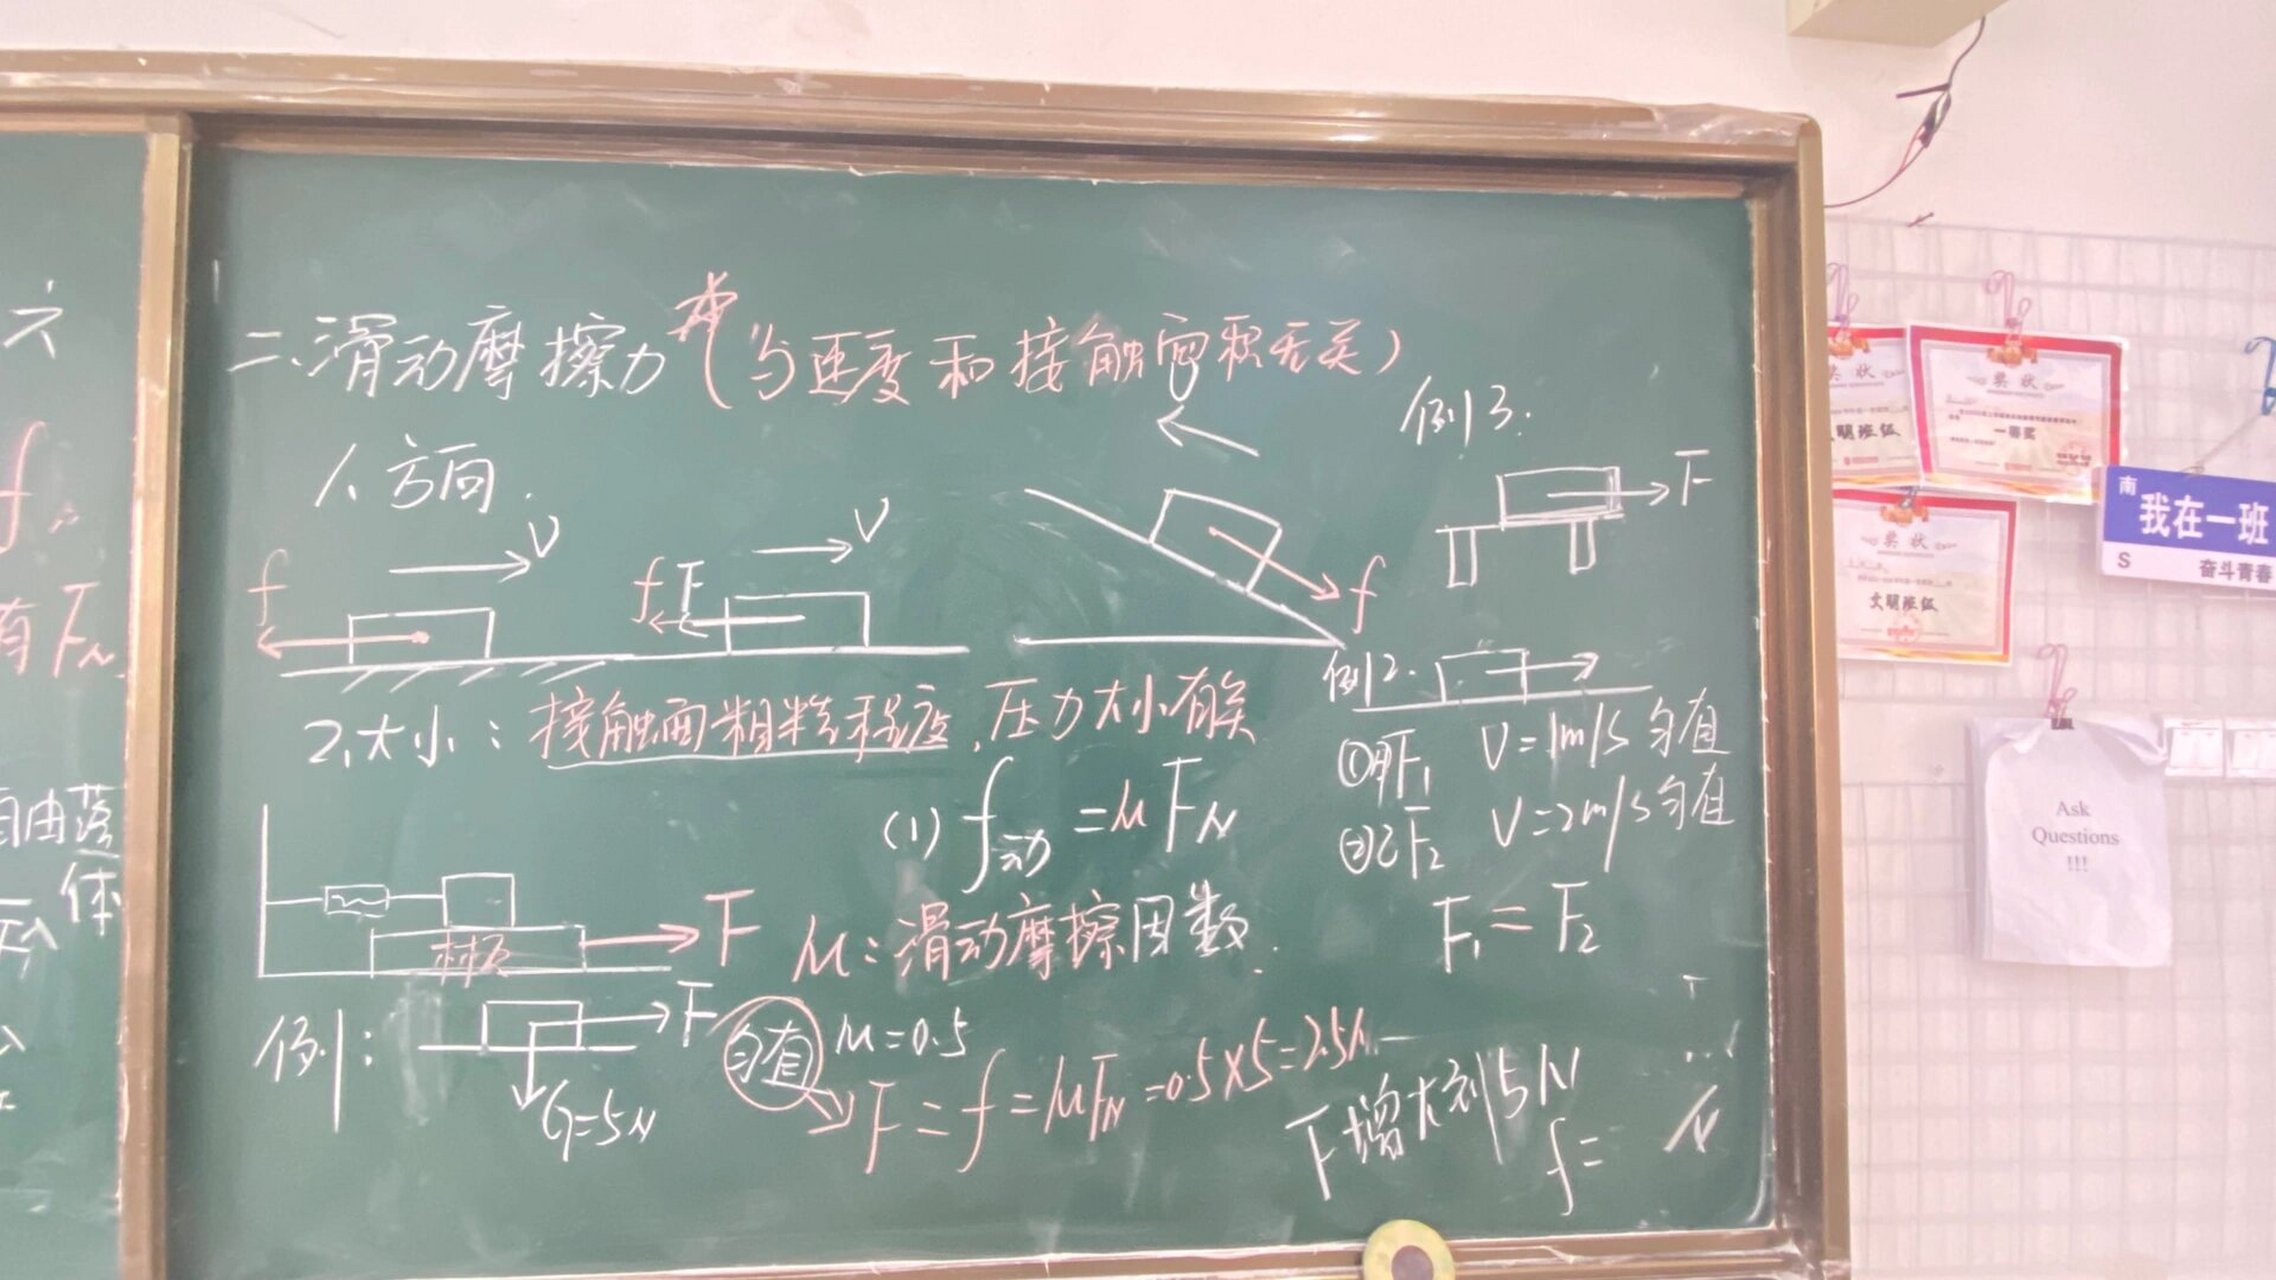 六
f
有FN
自由落
体
二、滑动摩擦力 (与速度和接触面积无关)
1、方向.
V
f
V
f F
f
例3:
F
2、大小: 接触面粗糙程度、压力大小有关
(1) f动 = μFN
木板
F
μ: 滑动摩擦因数.
例2.
①甲F1 V=1m/s 匀直
②乙F2 V=2m/s 匀直
F1 = F2
例1:
F
G=5N
匀直 μ=0.5
F = f = μFN = 0.5×5=2.5N
F增大到5N
f=
N
奖状
明班级
奖状
一等奖
奖状
文明班级
南
我在一班
S
奋斗青春
Ask
Questions
!!!